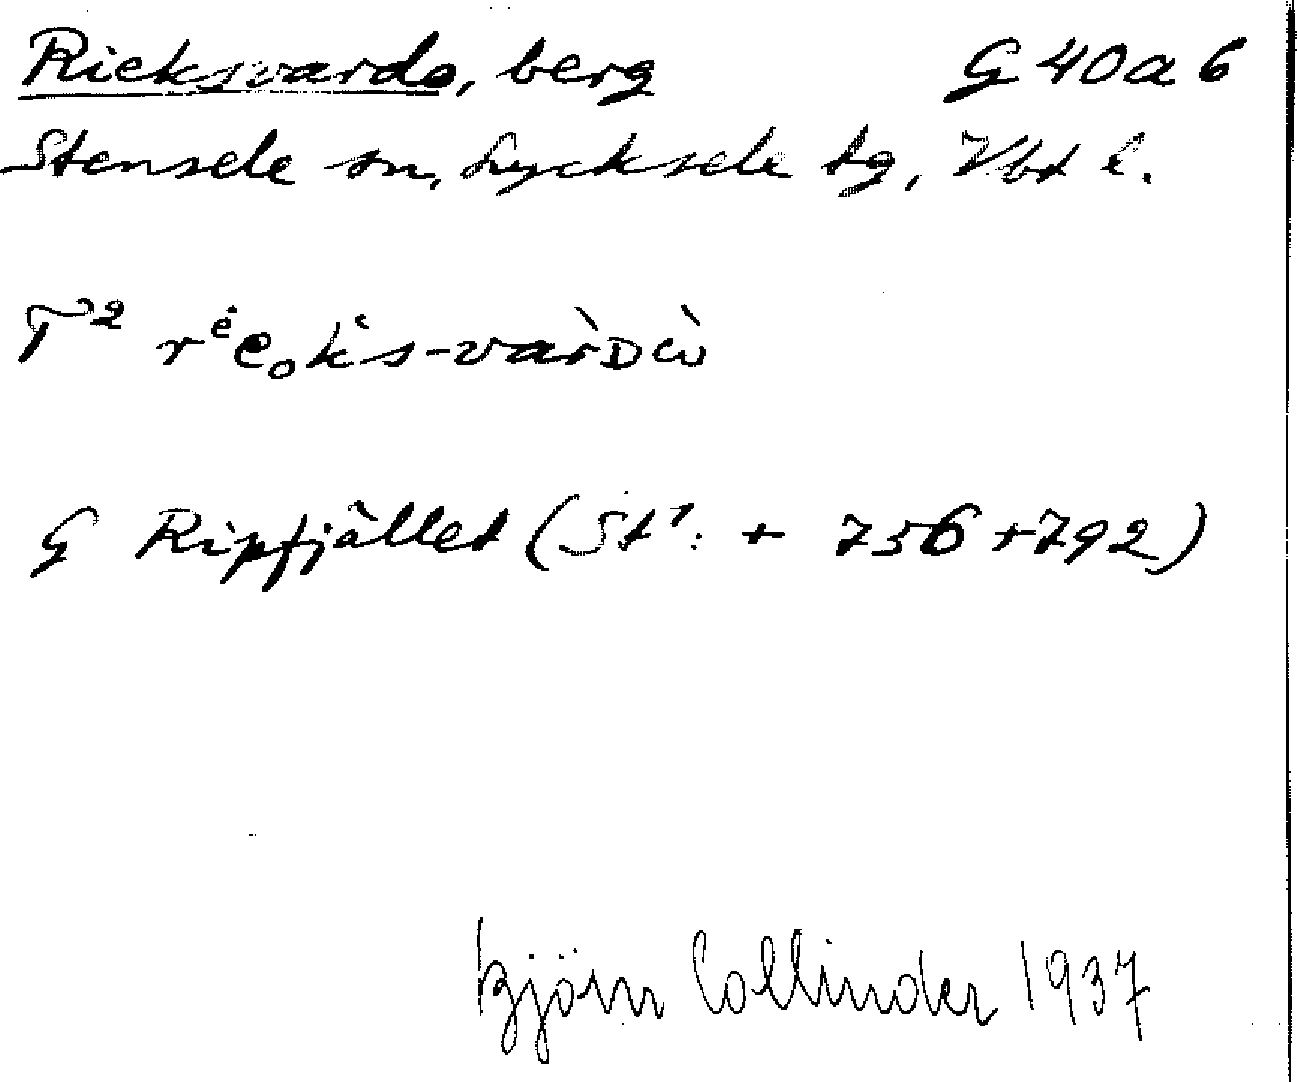 Rieksvardo, berg G 40 a 6
Stensele sn, Lycksele tg, Vbt l.
G Ripfjället (St¹: + 756 + 792)
Björn Collinder 1937